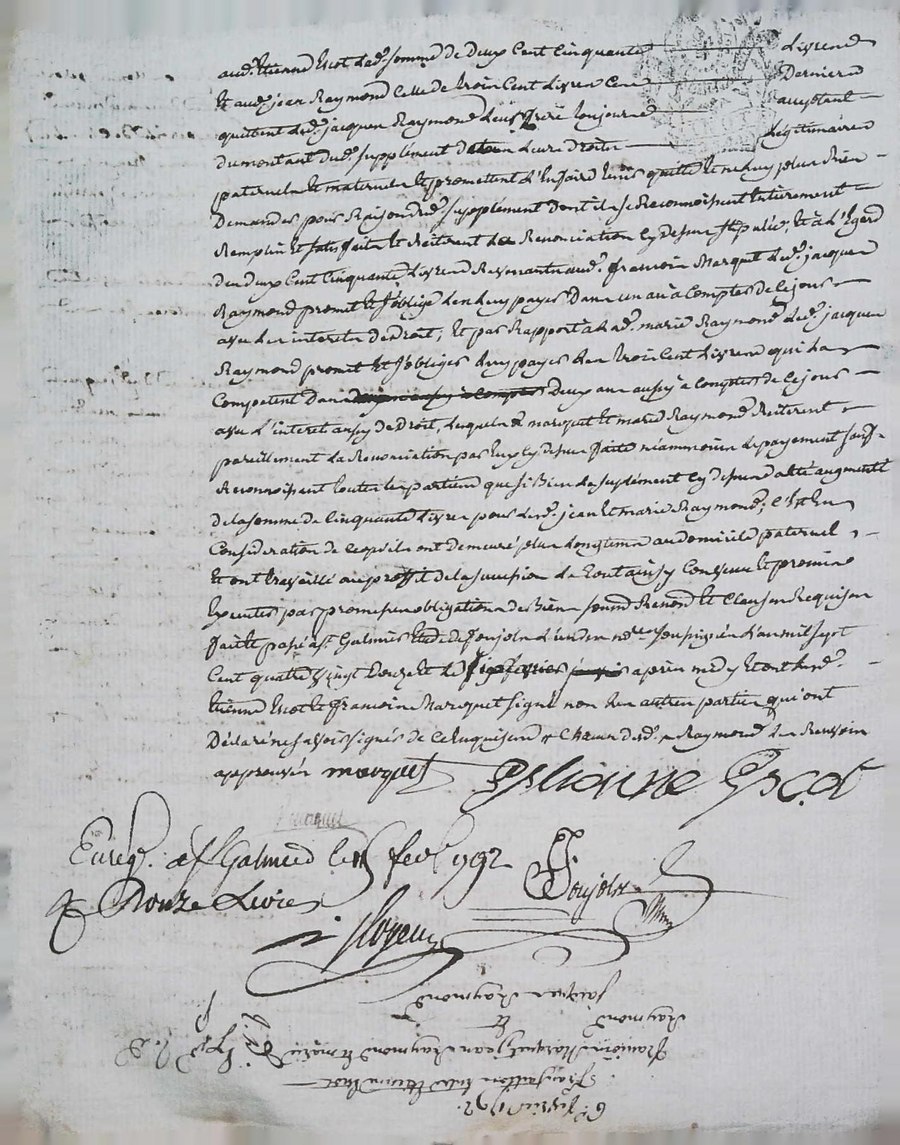 aud. Etienne Escot lad. somme de deux Cent Cinquante livres
Et aud. jean Raymond Celle de trois Cent livres Ce dernier
quittent led. jacques Raymond leur frere toujours acceptant
du montant dud. supplément de leurs droits légitimaires
paternels Et maternels Et promettent l'En faire tenir quitte Et ne luy plus Rien
demander pour Raison dud. supplément dont ils se Reconnoissent Entierement
Remplis Et satisfaits Et Réiterent la Renonciation cy dessus stipulée, Et à l'Egard
des deux Cent Cinquante livres Revenants aud. francois Marquet led. jacques
Raymond promet Et s'oblige de les luy payer dans un an à Compter de Ce jour
avec les interets de droit; Et par Rapport à lad. marie Raymond led. jacques
Raymond promet Et s'oblige de luy payer les trois Cent livres qui la
Competent dans deux ans aussy à Compter de Ce jour
avec l'interet aussy de droit, lesquels marquet Et marie Raymond Reiterent
pareillement la Renonciation par Eux cy dessus faite néanmoins le payement sauf
Reconnoissent toutes les parties que si Bien le suplément cy dessus a été augmenté
de la somme de Cinquante livres pour lesd. jean Et marie Raymond; C'est En
Consideration de Ce qu'ils ont demeuré plus longtems au domicile paternel
Et ont travaillé au proffit de la succession de tout ainsy Convenu Et promis
Executer par promesses obligation de Biens soumd. Renond. Et Clauses Requises
fait Et passé à St. Galmier Etude de Poujols l'un des nres. soussignés l'an mil sept
Cent quatre vingt douze Et le six fevrier après midy Et ont led.
Etienne Escot Et francois Marquet signé non les autres parties qui ont
Declaré ne savoir signer de Ce Enquis Raymond
approuvés marquet Estienne Escot
Enreg. à St Galmier le fevr. 1792
R. Douze Livres Poujols
Jacques Raymond
Et
Raymond
francois Marquet jean Raymond Et marie
Etienne Escot
6e. fevrier 1792.